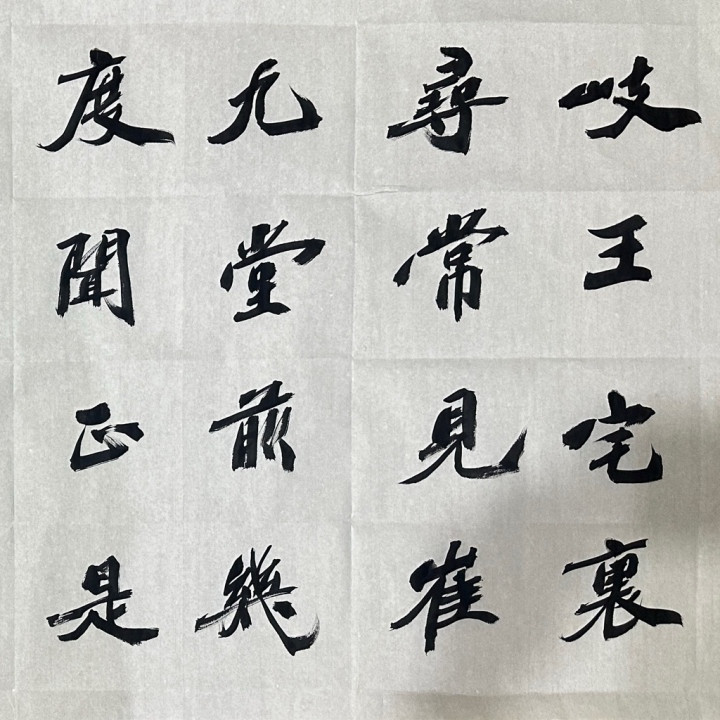 岐王宅裏
尋常見崔
九堂前幾
度聞正是